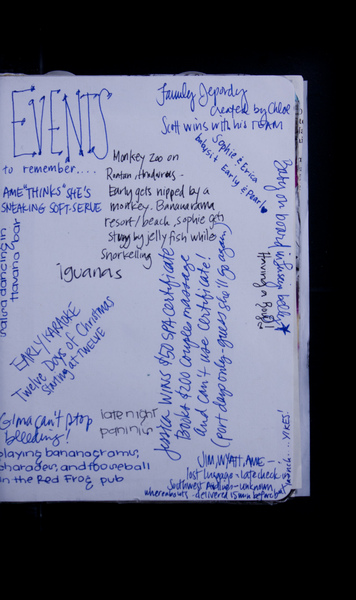 EVENTS
to remember....
AME "THINKS" SHE'S
SNEAKING SOFT-SERVE
Salsa dancing in
Havana bar
Family Jepordy
created by Chloe
Scott wins with his TEAM
Sophie & Erica
babysit Early & Pearl
Monkey Zoo on
Roatan, Honduras.
Early gets nipped by a
monkey. Bananarama
resort/beach, sophie gets
stung by jelly fish while
Snorkelling
iguanas
Having a Ball!
EARLY KARAOKE
Twelve Days of Christmas
Starting at TWELVE
Jessica WINS $50 SPA certificate
Books $200 couples massage
and can't use certificate!
(Port days only - guess she'll go again)
G'ma can't stop
bleeding!
late night
paninis
playing bananagrams,
charades, and fooseball
in the Red Frog pub
JIM, WYATT, AME -
lost luggage - late check
Southwest Airlines - unknown
whereabouts - delivered 15 min before boat
YIKES!